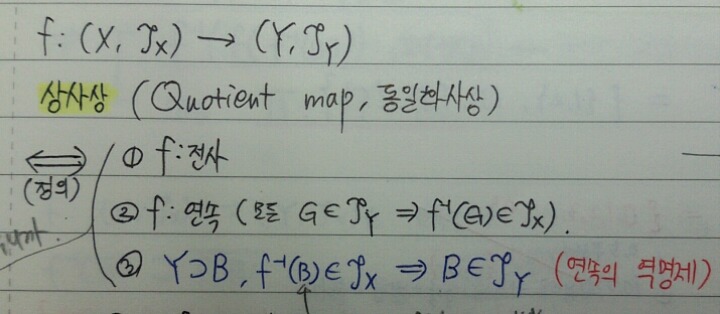 f: (X, 𝒯_X) → (Y, 𝒯_Y)
상사상 (Quotient map, 동일화사상)
⟺ ① f: 전사
(정의)
② f: 연속 (모든 G ∈ 𝒯_Y ⇒ f⁻¹(G) ∈ 𝒯_X).
③ Y⊃B, f⁻¹(B) ∈ 𝒯_X ⇒ B ∈ 𝒯_Y (연속의 역명제)